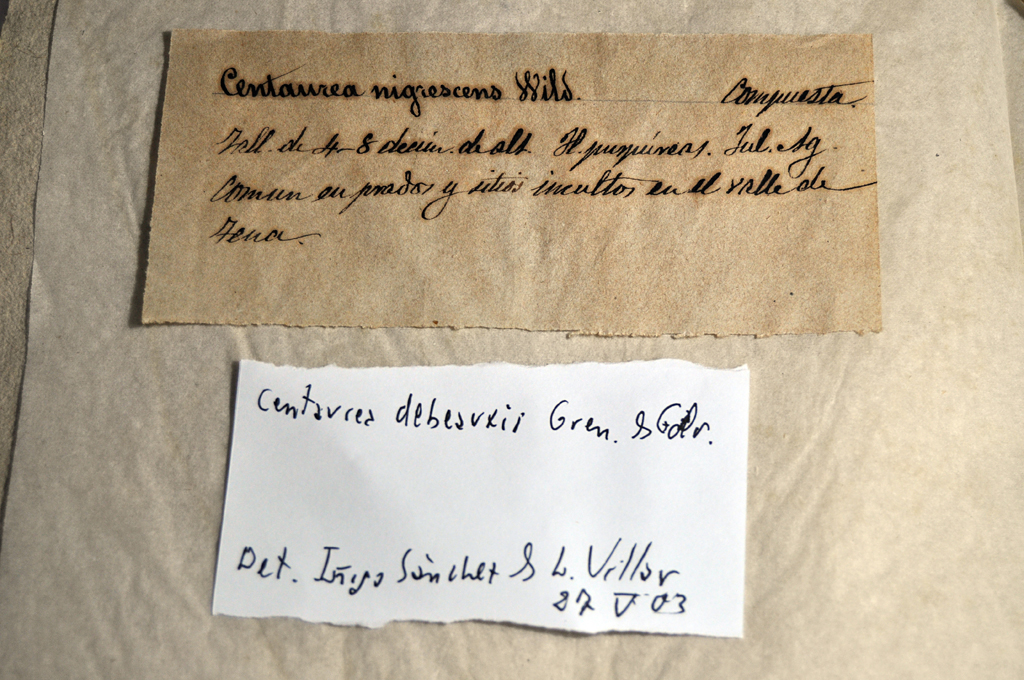 Centaurea nigrescens Wild. Compuesta.
Tall. de 4-8 decím. de alt. Fl. purpúreas. Jul. Ag.
Comun en prados y sitios incultos en el valle de
Tena.
Centaurea debeauxii Gren. & Godr.
Det. Iñigo Sánchez & L. Villar
27 V 03